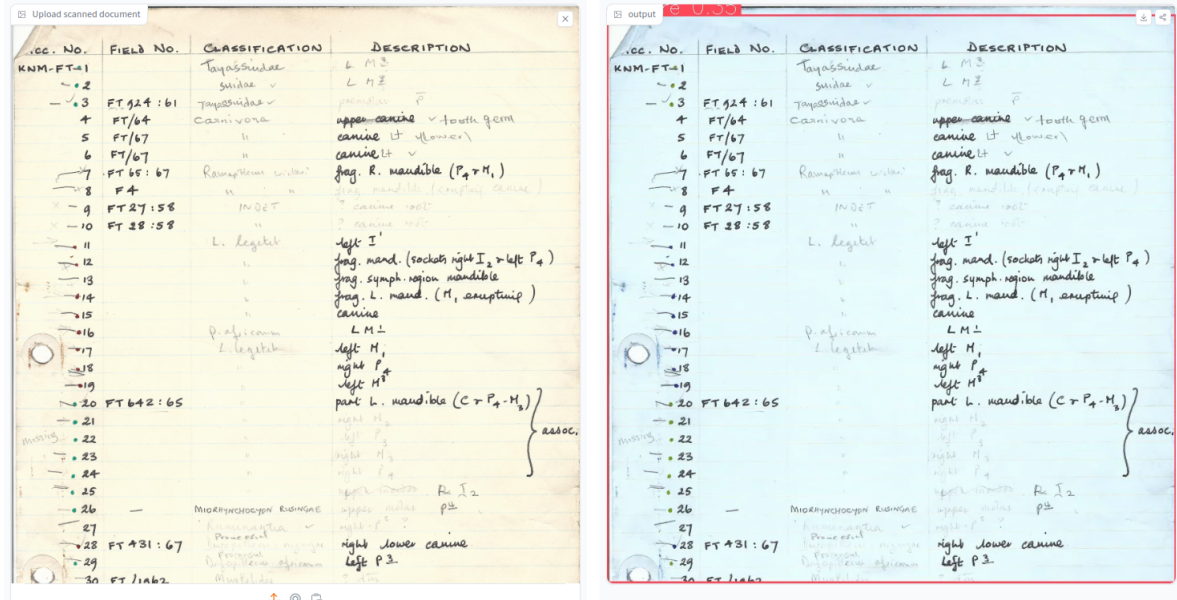 Upload scanned document
.cc. No. FIELD No. CLASSIFICATION DESCRIPTION
KNM-FT-1 Tayassuidae L M3
2 suidae L M
3 FT 924:61 Tayassuidae premolar P
4 FT/64 Carnivora upper canine tooth germ
5 FT/67 " canine Lt (lower)
6 FT/67 " canine Lt
7 FT 65:67 frag. R. mandible (P4 r M1)
8 F4 " " " frag mandible (erupting canine)
9 FT 27:58 INDET ? canine root
10 FT 28:58 " ? canine root
11 L. legetet left I'
12 frag. mand. (sockets right I2 r left P4)
13 frag. symph. region mandible
14 frag. L. mand. (M, erupting)
15 canine
16 P. africanus L M1
17 L. legetet left M,
18 right P4
19 left M3
20 FT 642:65 part L. mandible (C r P4-M3)
21 right M2
missing 22 left P3 assoc.
23 right M3
24 right P4
25 R I2
26 — MIORHYNCHOCYON RUSINGAE upper molar P4
27 right P ?
28 FT 431:67 right lower canine
29 left P3
30 FT/1962
output
e 0.35
.cc. No. FIELD No. CLASSIFICATION DESCRIPTION
KNM-FT-1 Tayassuidae L M3
2 suidae L M
3 FT 924:61 Tayassuidae premolar P
4 FT/64 Carnivora upper canine tooth germ
5 FT/67 " canine Lt (lower)
6 FT/67 " canine Lt
7 FT 65:67 frag. R. mandible (P4 r M1)
8 F4 " " " frag mandible (erupting canine)
9 FT 27:58 INDET ? canine root
10 FT 28:58 " ? canine root
11 L. legetet left I'
12 frag. mand. (sockets right I2 r left P4)
13 frag. symph. region mandible
14 frag. L. mand. (M, erupting)
15 canine
16 P. africanus L M1
17 L. legetet left M,
18 right P4
19 left M3
20 FT 642:65 part L. mandible (C r P4-M3)
21 right M2
missing 22 left P3 assoc.
23 right M3
24 right P4
25 R I2
26 — MIORHYNCHOCYON RUSINGAE upper molar P4
27 right P ?
28 FT 431:67 right lower canine
29 left P3
30 FT/1962